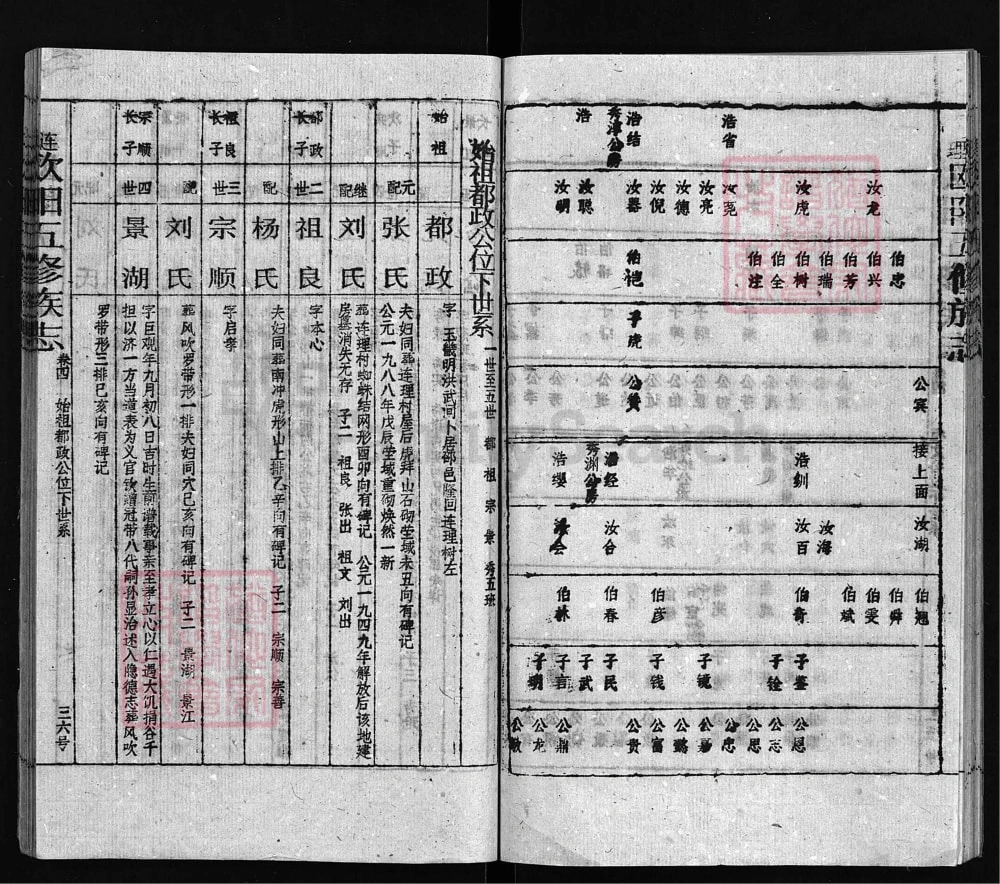 理
浩省
浩结
秀淳公房
浩
汝龙
汝虎
汝尧
汝亮
汝德
汝倪
汝器
汝聪
汝明
伯忠
伯兴
伯芳
伯瑞
伯树
伯全
伯注
子虎
公宾
公贵
接上面
浩钏
浩经
秀渊公房
浩缨
汝湖
汝海
汝百
汝合
汝会
伯翘
伯舜
伯雯
伯斌
伯奇
伯彦
伯春
伯林
子鉴
子铨
子镜
子钱
子民
子武
子言
子明
公恩
公志
公思
公忠
公嘉
公懿
公富
公贵
公鼎
公龙
公敏
始祖都政公位下世系 一世至五世 都 祖 宗 景 秀五班
始祖 都政 字 玉毓明洪武间卜居邵邑隆回连理树左
元配 张氏 夫妇同葬连理村屋后虎拜山石砌茔域未丑向有碑记
公元一九八八年戊辰茔域重砌焕然一新
继配 刘氏 葬连理村蜘蛛结网形酉卯向有碑记 公元一九四九年解放后该地建
房墓消失无存 子二 祖良 张出 祖文 刘出
都政长子 二世 祖良 字本心
配 杨氏 夫妇同葬南冲虎形山上排乙辛向有碑记 子二 宗顺 宗善
祖良长子 三世 宗顺 字启孝
配 刘氏 葬风吹罗带形一排夫妇同穴巳亥向有碑记 子二 景湖 景江
宗顺长子 四世 景湖 字巨观年九月初八日吉时生前谱载事亲至孝立心以仁遇大饥捐谷千
担以济一方当道表为义官钦赠冠带八代嗣孙显治述入隐德志葬风吹
罗带形三排巳亥向有碑记
连 欧阳五修族志 卷四 始祖都政公位下世系 三六号